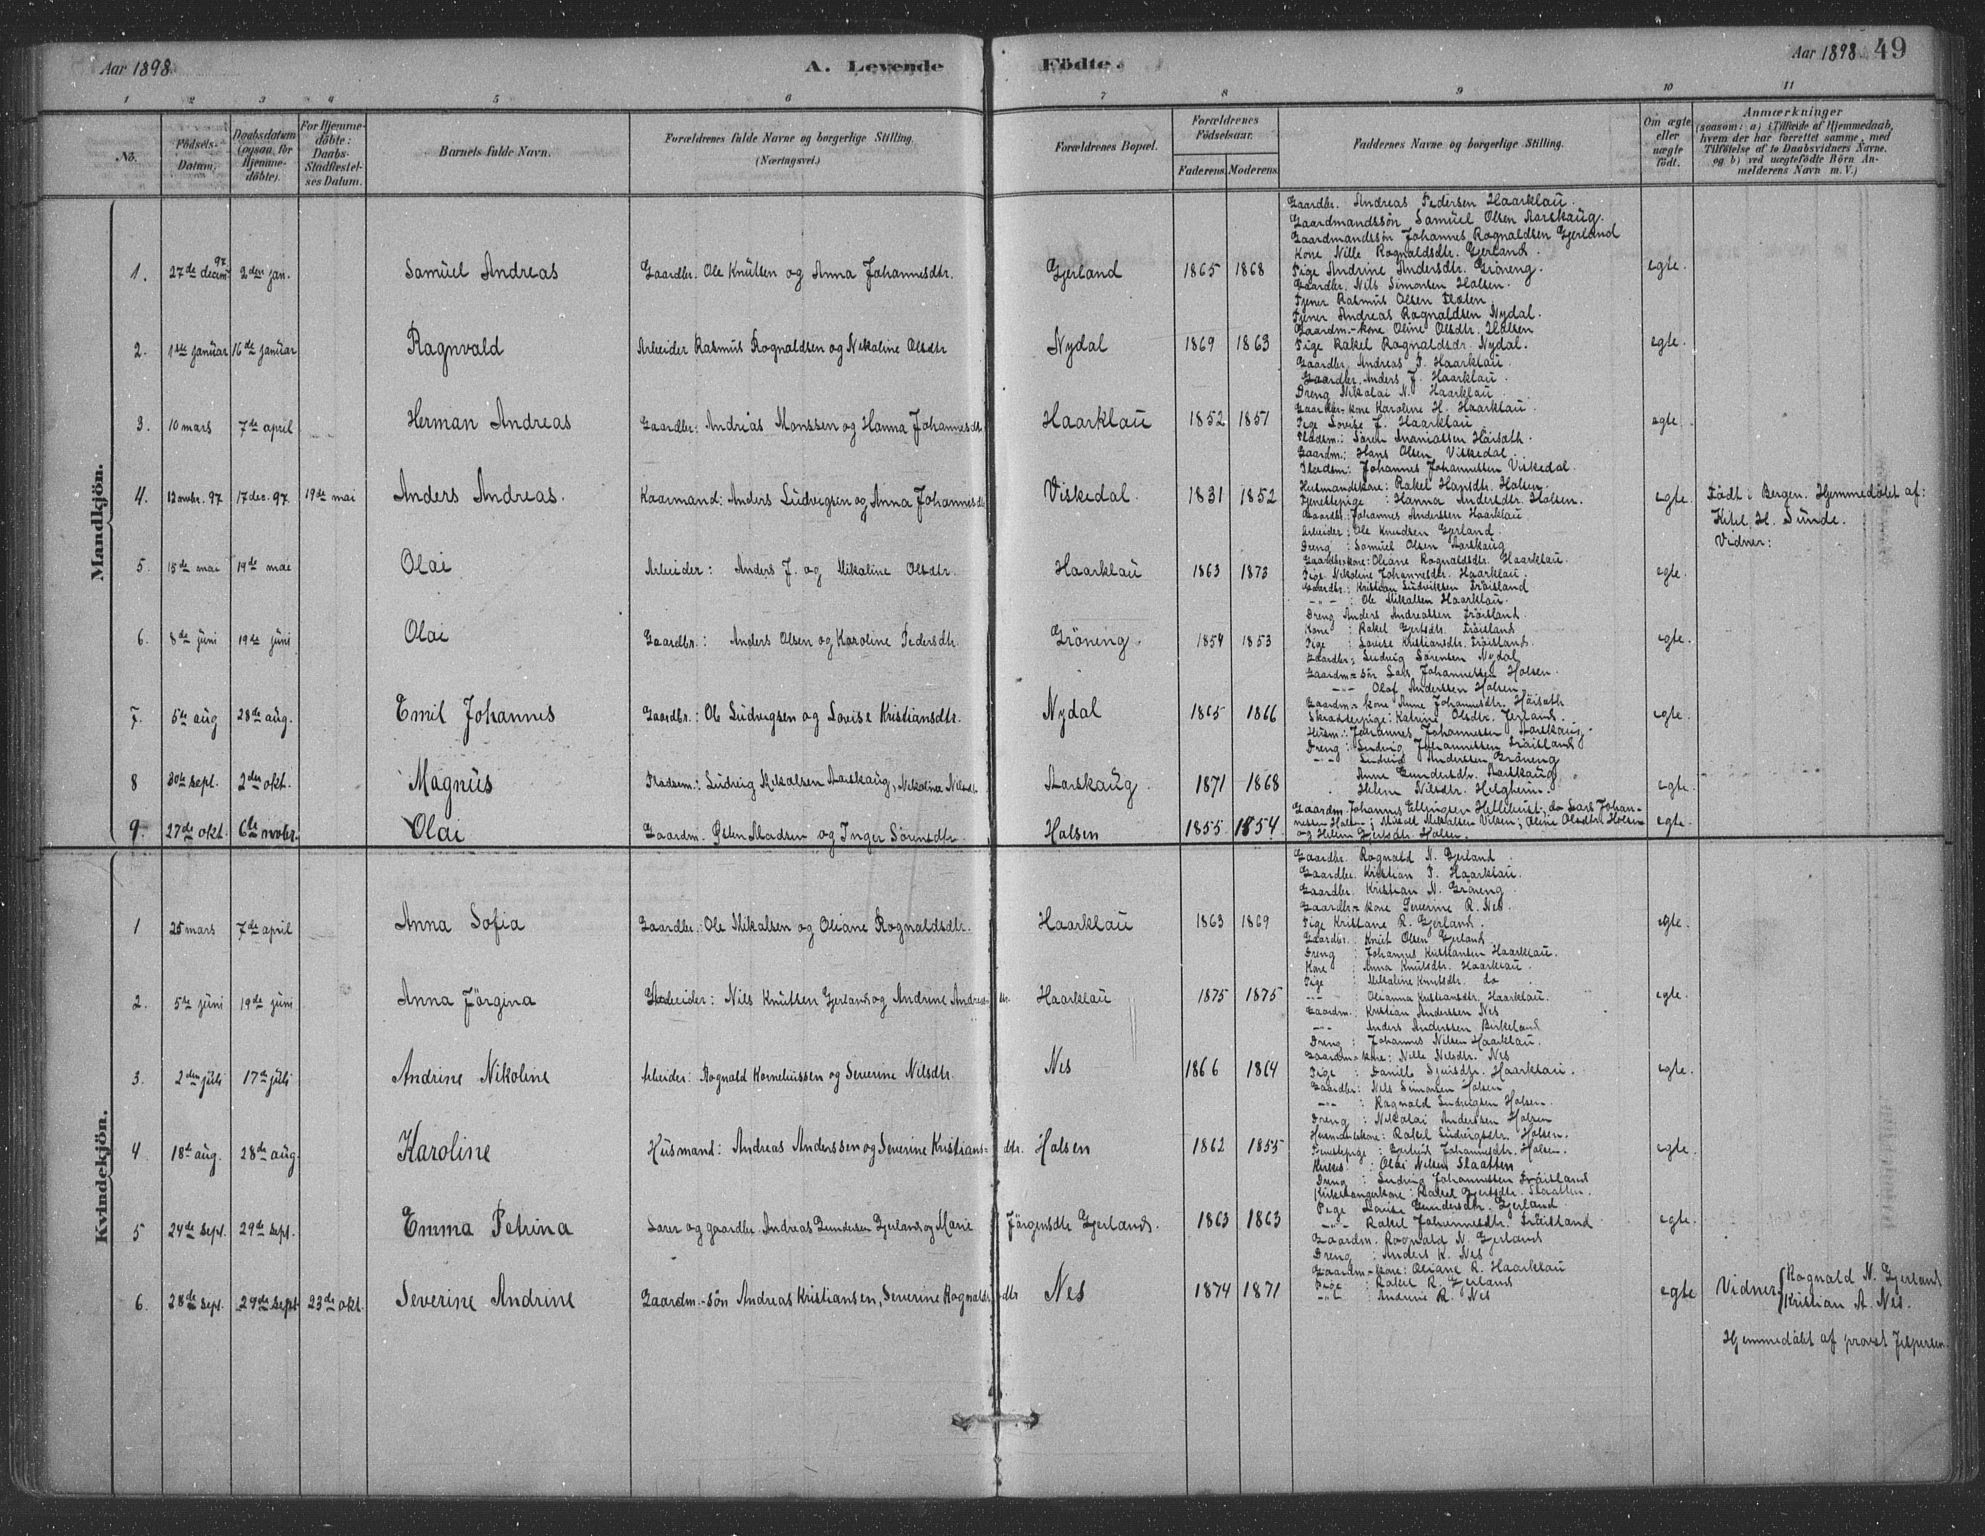 Aar 1898.
A. Levende Födte.
Aar 1898. 49
1 2 3 4 5 6 7 8 9 10 11
No.
Födsels-Datum.
Daabsdatum (ogsaa for Hjemme-döbte).
For Hjemme-döbte: Daabs-Stadfæstel-ses Datum.
Barnets fulde Navn.
Forældrenes fulde Navne og borgerlige Stilling. (Næringsvei.)
Forældrenes Bopæl.
Forældrenes Födselsaar. Faderens. Moderens.
Faddernes Navne og borgerlige Stilling.
Om ægte eller uægte födt.
Anmærkninger (saasom: a) i Tilfælde af Hjemmedaab, hvem der har forrettet samme, med Tilföielse af to Daabsvidners Navne, og b) ved uægtefödte Börn An-melderens Navn m. V.)
Mandkjön.
1. 27de decem. 97 2den jan. Samuel Andreas Gaardbr. Ole Knutsen og Anna Johannesdtr. Gjerland 1865 1868 egte.
Gaardbr. Andreas Pedersen Haarklau.
Gaardmandssön Samuel Olsen Aarskaug.
Gaardmandssön Johannes Rognaldsen Gjerland
Kone Nille Rognaldsdtr. Gjerland.
Pige Andrine Andersdtr. Gröneng.
2. 1ste januar 16de januar Ragnvald Arbeider Rasmus Rognaldsen og Nikoline Olsdtr Nydal 1869 1863 egte.
Gaardbr. Nils Simonsen Halsen.
Tjener Rasmus Olsen Flaten.
Tjener Andreas Rognaldsen Nydal.
Gaardm.-kone Oline Olsdtr. Halsen
Pige Rakel Rognaldsdr. Nydal.
3. 10 mars 7de april Herman Andreas Gaardbr: Andreas Monssen og Hanna Johannesdtr Haarklau 1852 1851 egte.
Gaardbr. Andreas P. Haarklau.
Gaardbr. Anders J. Haarklau.
Dreng Nikolai N. Haarklau.
Gaardbr-kone Karoline H. Haarklau.
Pige Lovise J. Haarklau.
4. 12 novbr. 97 17 dec. 97. 19de mai Anders Andreas. Kaarmand: Anders Ludvigsen og Anna Johannesdtr Viskedal. 1831 1852 egte.
Pladsm.: Sören Ananiassen Haisath.
Gaardm: Hans Olsen Viskedal.
Pladsm: Johannes Johannessen Viskedal.
Husmandskone: Rakel Hansdtr. Halsen.
Tjenestepige: Hanna Andersdtr. Halsen.
Födt i Bergen. Hjemmedöbt af: H. Sunde. Vidner:
5. 15de mai 19de mai Olai Arbeider: Anders J. og Mikaline Olsdtr. Haarklau 1863 1873 egte.
Gaardbr: Johannes Anderssen Haarklau.
Arbeider: Ole Knudsen Gjerland.
Dreng: Samuel Olsen Aarskaug
Gaardbr-kone: Oliane Rognaldsdtr. Haarklau.
Pige Nikoline Johannesdtr. Haarklau.
6. 8de juni 19de juni Olai Gaardbr.: Anders Olsen og Karoline Pedersdtr. Gröneng. 1854 1853 egte.
Gaardbr: Kristian Ludvigsen Fröisland
-"- : Ole Mikalsen Haarklau.
Dreng Anders Andreassen Fröisland.
Kone : Rakel Gjertsdtr. Fröisland
Pige : Lovise Kristiansdtr. Fröisland.
7. 5te aug 28de aug. Emil Johannes Gaardbr.: Ole Ludvigsen og Lovise Kristiansdtr. Nydal 1865 1866 egte.
Gaardbr: Ludvig Sörensen Nydal
Gaardm-sön Lars Johannessen Halsen.
-"- Olaf Anderssen Halsen.
Gaardm-kone Anne Johannesdtr. Haisath
Skrædderpige: Katrine Olsdtr. Gjerland.
8 30te sept. 2den okt. Magnus Pladsm.: Ludvig Mikalsen Aarskaug, Nikolina Nilsdtr. Aarskaug. 1871 1868 egte.
Husm.: Johannes Johannessen Aarskaug.
Dreng: Ludvig Johannessen Fröisland
-"- Ludvig Anderssen Gröneng
Anne Gundersdtr. Aarskaug.
Helene Nilsdtr. Helgheim.
9. 27de okt. 6te novbr. Olai Gaardm. Peter Madsen og Inger Sörensdtr Halsen 1855. 1854. egte.
Gaardm. Johannes Ellingsen Hellekust. do Lars Johan-
nessen Halsen; Mikal Mikalsen Vilsen; Oline Olsdtr. Halsen
og Helene Gjertsdtr. Halsen.
Kvindekjön.
1 25 mars 7de april Anna Sofia Gaardbr.: Ole Mikalsen og Oliane Rognaldsdtr. Haarklau 1863 1869 egte.
Gaardbr. Rognald N. Gjerland
Gaardbr. Kristian P. Haarklau.
Gaardbr. Kristian N. Gröneng.
Gaardbr-kone Severine R. Nes
Pige Kristiane R. Gjerland.
2. 5te juni 19de juni Anna Jörgina Arbeider: Nils Knutsen Gjerland og Andrine Andreas- dtr. Haarklau 1875 1875 egte.
Gaardbr.: Knut Olsen Gjerland
Dreng : Johannes Kristiansen Haarklau.
Kone : Anna Knutsdtr. Haarklau.
Pige : Mikkaline Knutsdtr. do
-"- Olianna Kristiansdtr. Haarklau.
3. 2den juli 17de juli Andrine Nikoline Arbeider: Rognald Korneliussen og Severine Nilsdtr. Nes 1866 1864 egte.
Gaardm.: Kristian Anderssen Nes
-"- Anders Anderssen Birkeland
Dreng : Johannes Nilsen Haarklau.
Gaardm-kone: Nille Nilsdtr. Nes
Pige : Daniel Sjursdtr. Haarklau.
4 18de aug. 28de aug Karoline Husmand: Andreas Anderssen og Severine Kristians- dtr. Halsen 1862 1855 egte.
Gaardbr: Nils Simonsen Halsen
-"- : Rognald Ludvigsen Halsen.
Dreng : Nikolai Anderssen Halsen
Husmandskone: Rakel Ludvigsdtr. Halsen.
Tjenestepige : Gjertrud Johannesdtr. Halsen.
5 24de sept. 29de sept. Emma Petrina Lærer og gaardbr. Andreas Gundersen Gjerland og Marie Jörgensdtr Gjerland. 1863 1863 egte.
: Olai Nilsen Slaatten
Dreng : Ludvig Johannessen Fröisland
Kirkesangerkone: Rakel Gjertsdtr. Slaatten.
Pige Lovise Gundersdtr. Gjerland
-"- Rakel Johannesdtr. Fröisland
6. 28de sept. 29de sept 23de okt. Severine Andrine Gaardm.-sön Andreas Kristiansen, Severine Rognalds- dtr Nes 1874 1871 egte
Gaardm. Rognald N. Gjerland
Dreng : Anders K. Nes
Gaardm-kone: Oliane R. Haarklau
Pige : Rakel R. Gjerland
-"- : Andrine R. Nes
Vidner { Rognald N. Gjerland Kristian A. Nes.
Hjemmedöbt af provst Jespersen.